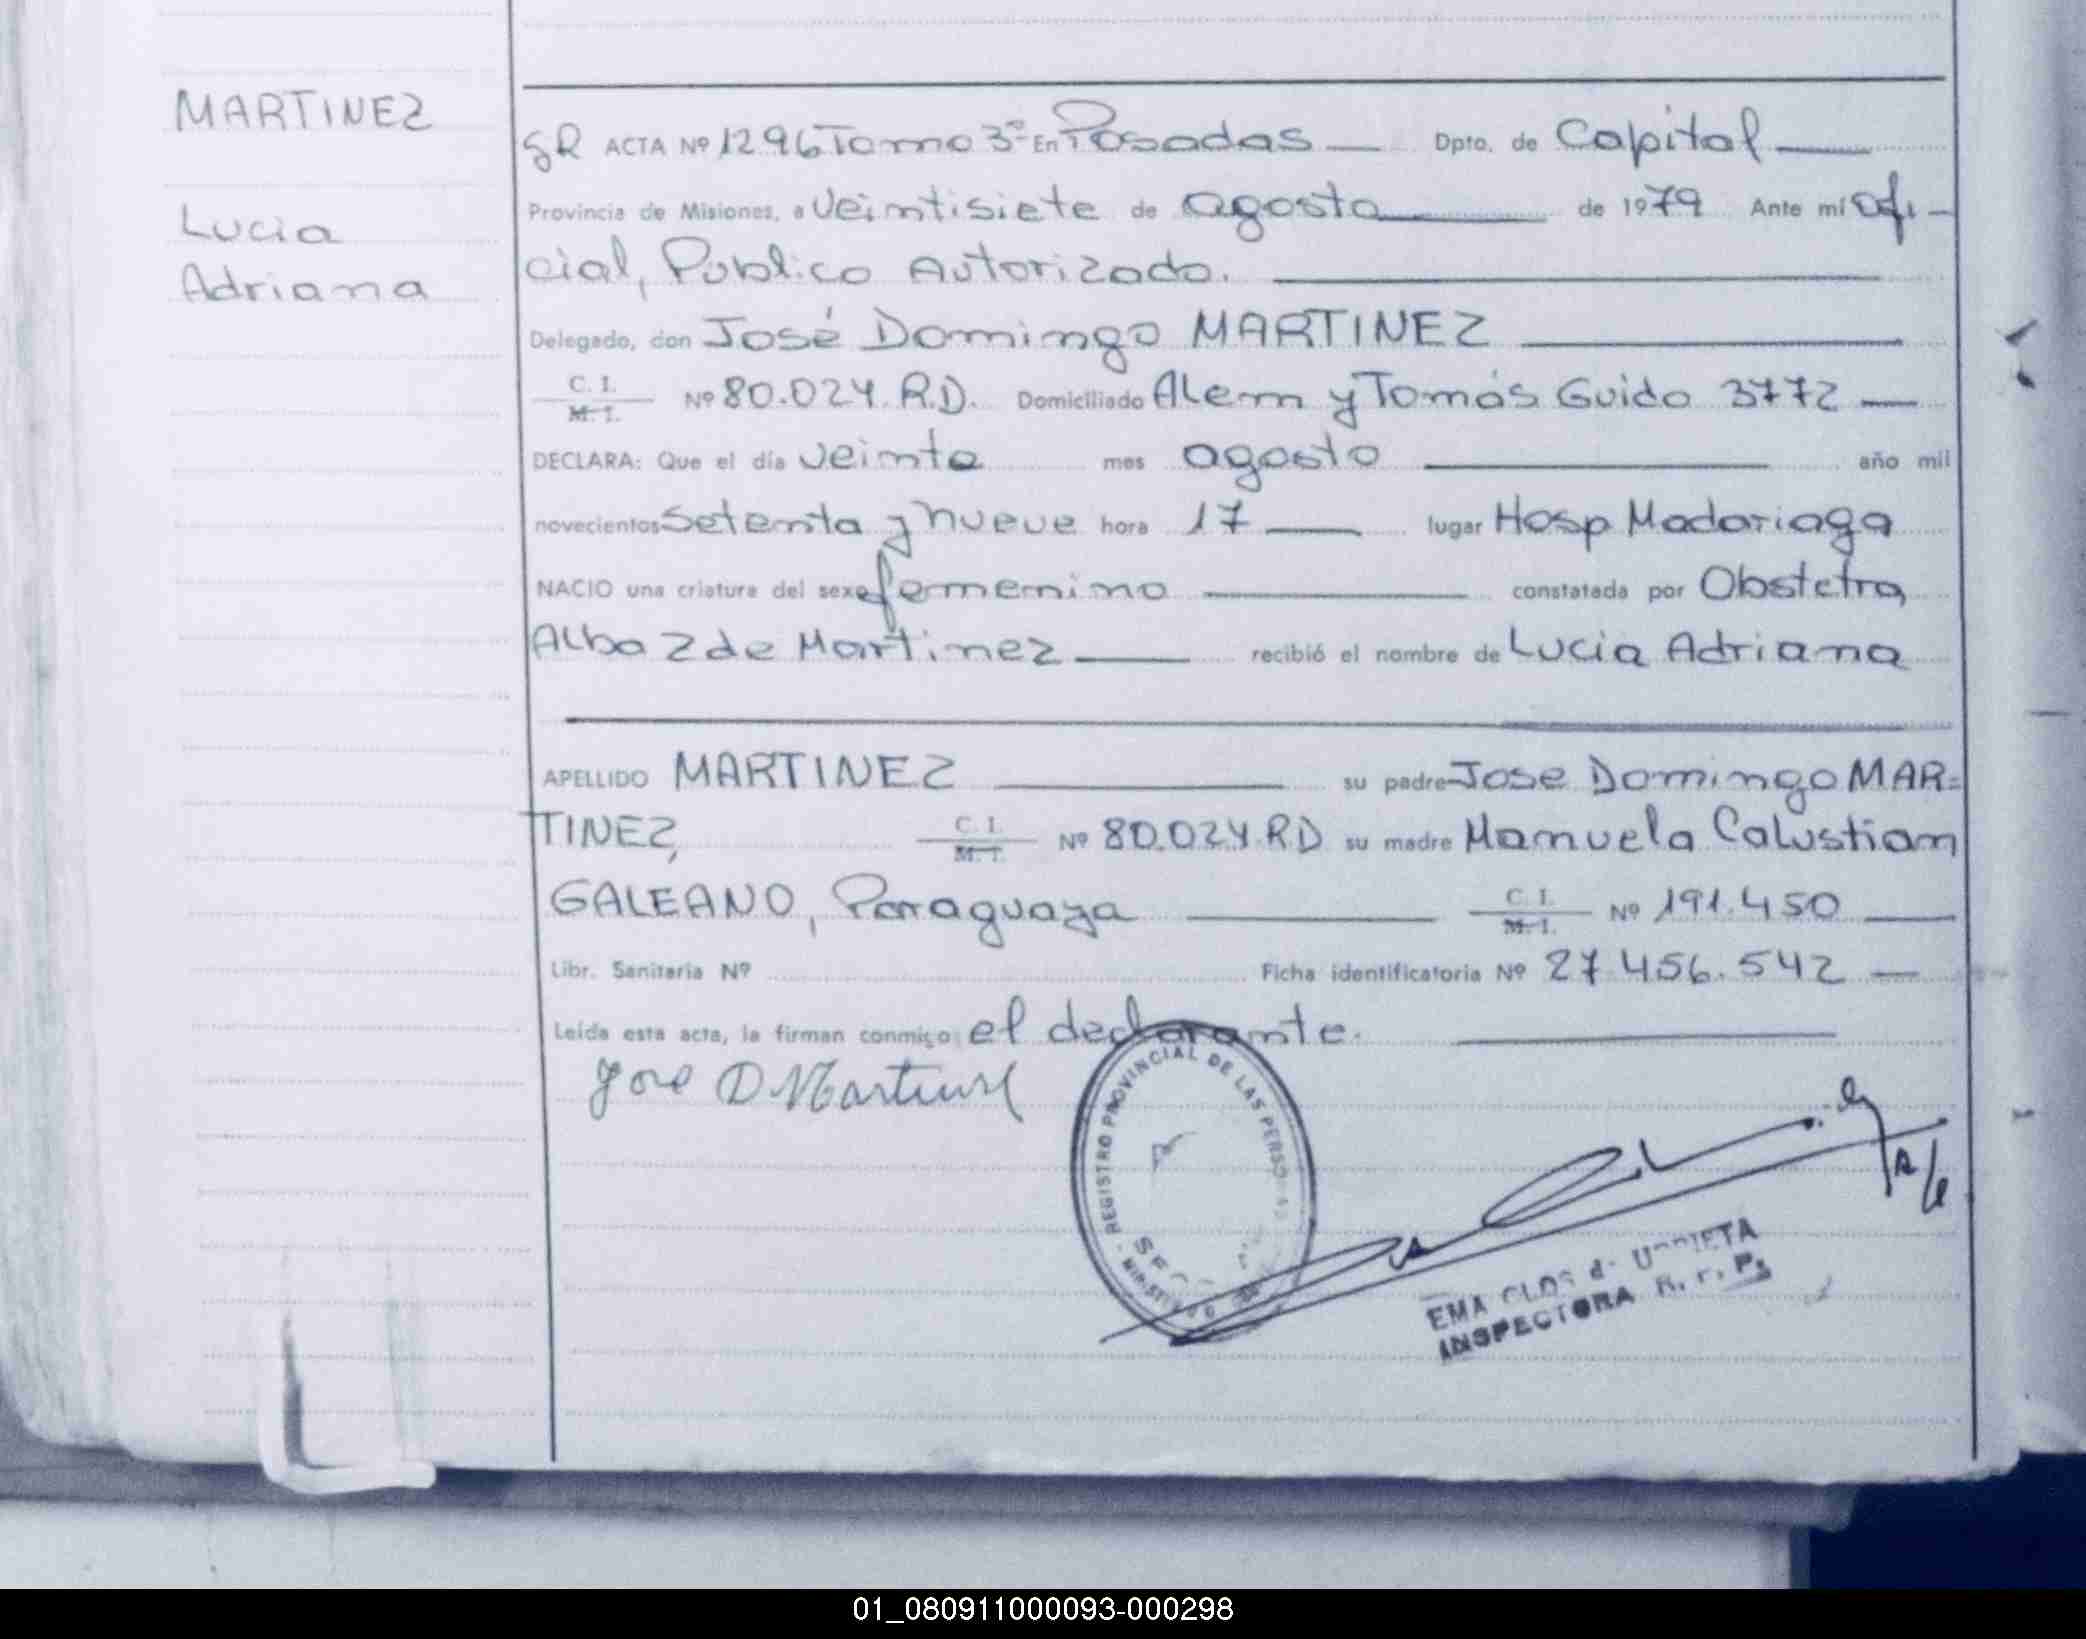 MARTINEZ
Lucia
Adriana
ACTA Nº 1296 Tomo 3º En Posadas Dpto. de Capital
Provincia de Misiones, a veintisiete de agosto de 1979 Ante mí Ofi-
cial, Publico Autorizado.
Delegado, don José Domingo MARTINEZ
C. I.
M. I. Nº 80.024 R.D. Domiciliado Alem y Tomás Guido 3772
DECLARA: Que el día veinte mes agosto año mil
novecientos setenta y nueve hora 17 lugar Hosp Madariaga
NACIO una criatura del sexo femenino constatada por Obstetra,
Alba Z de Martinez recibió el nombre de Lucia Adriana
APELLIDO MARTINEZ su padre Jose Domingo MAR=
TINEZ, C. I.
M. I. Nº 80.024 RD su madre Manuela
GALEANO, Paraguaya C. I.
M. I. Nº 191.450
Libr. Sanitaria Nº Ficha identificatoria Nº 27.456.542
Leída esta acta, la firman conmigo: el declarante.
Jose D Martinez
REGISTRO PROVINCIAL DE LAS PERSO
EMA
INSPECTORA R. P.
01_080911000093-000298